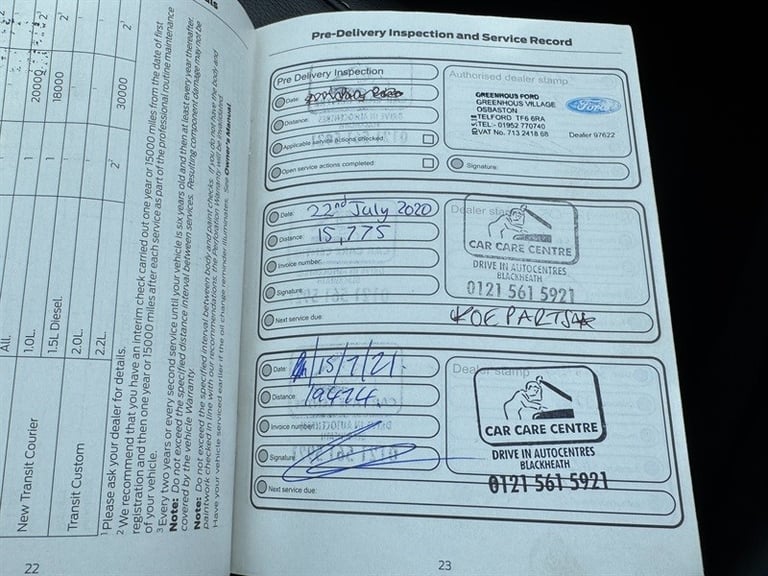 All.
1.0L.
1.5L Diesel.
2.0L.
2.2L.
New Transit Courier
Transit Custom
20000
18000
30000
1 Please ask your dealer for details.
2 We recommend that you have an interim check carried out one year or 15000 miles from the date of first
registration and then one year or 15000 miles after each service as part of the professional routine maintenance
of your vehicle.
3 Every two years or every second service until your vehicle is six years old and then at least every year thereafter.
Note: Do not exceed the specified distance interval between services. Resulting component damage may not be
covered by the vehicle Warranty.
Note: Do not exceed the specified interval between body and paint checks. If you do not have the body and
paintwork checked in line with our recommendations, the Perforation Warranty will be invalidated.
Have your vehicle serviced earlier if the oil change reminder illuminates. See Owner's Manual.
22
Pre-Delivery Inspection and Service Record
Pre Delivery Inspection
Date:
Distance:
Applicable service actions checked
Open service actions completed
Authorised dealer stamp
GREENHOUS FORD
GREENHOUS VILLAGE
OSBASTON
TELFORD TF6 6RA
TEL:- 01952 770740
VAT No. 713 2418 68
Dealer 97622
Ford
Signature:
Date: 22nd July 2020
Distance: 15,775
Invoice number:
Signature:
Next service due:
Dealer stamp
CAR CARE CENTRE
DRIVE IN AUTOCENTRES
BLACKHEATH
0121 561 5921
Date: 15/7/21.
Distance: 19424
Invoice number:
Signature:
Next service due:
Dealer stamp
CAR CARE CENTRE
DRIVE IN AUTOCENTRES
BLACKHEATH
0121 561 5921
23